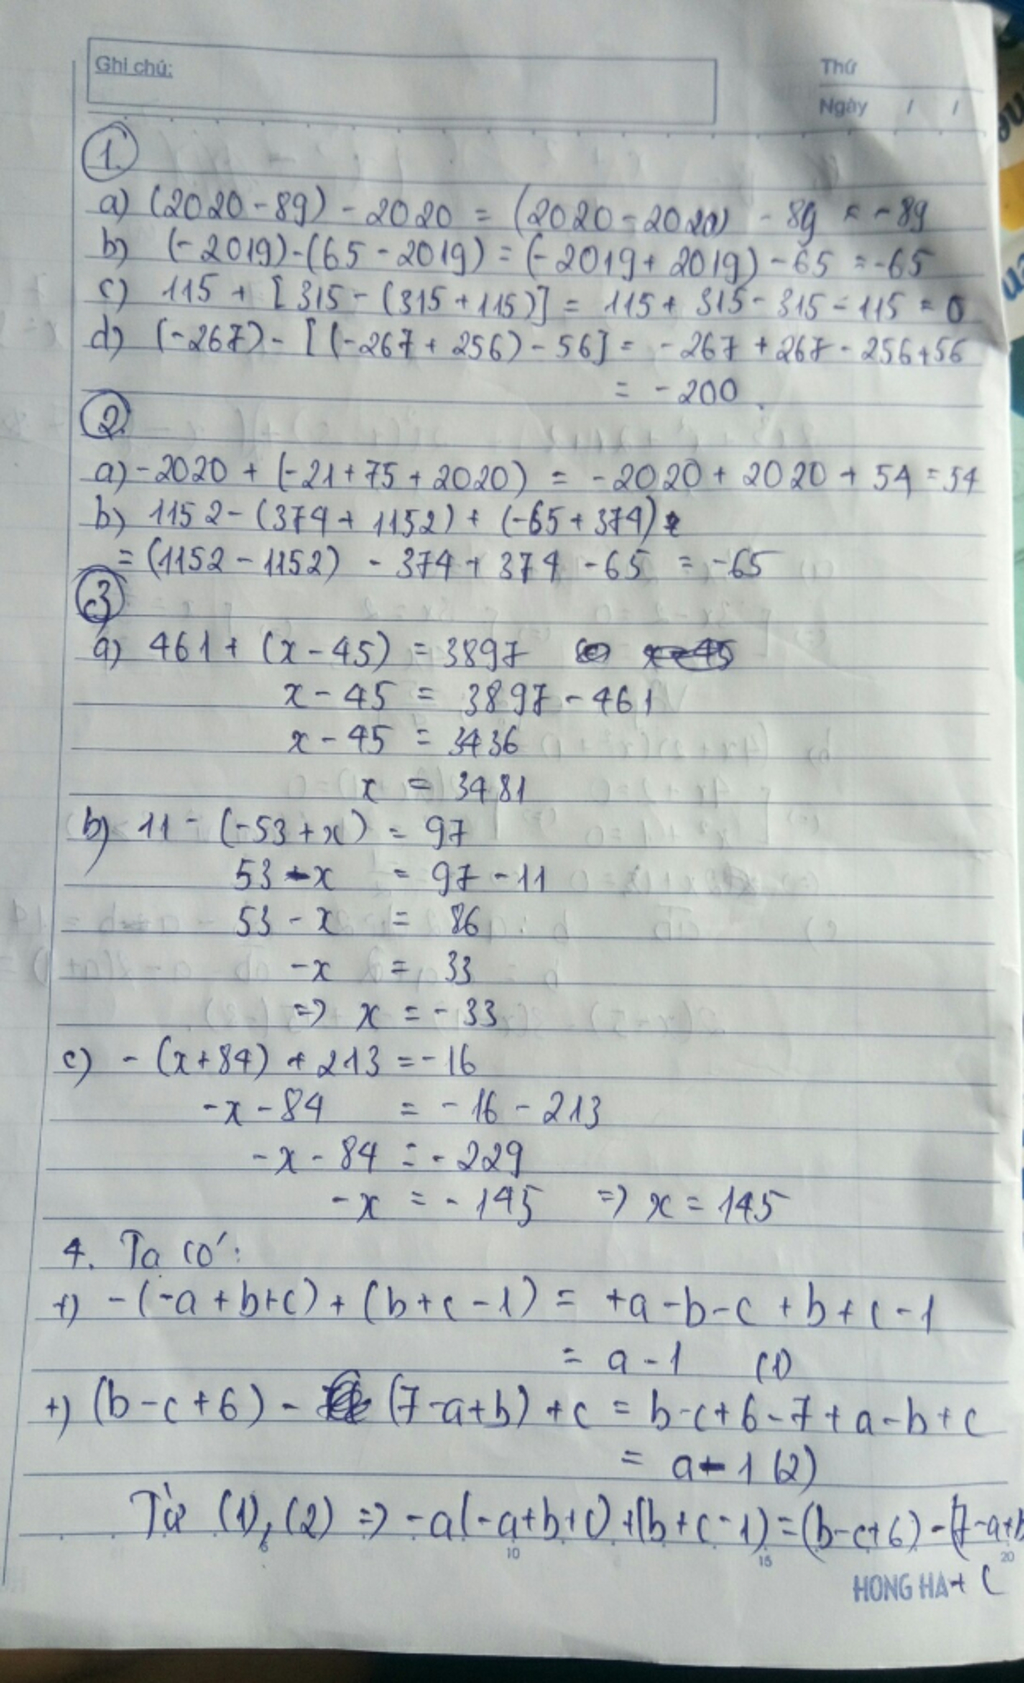 Ghi chú:
Thứ
Ngày / /
1.
a) (2020 - 89) - 2020 = (2020 - 2020) - 89 = - 89
b) (- 2019) - (65 - 2019) = (- 2019 + 2019) - 65 = -65
c) 115 + [315 - (315 + 115)] = 115 + 315 - 315 - 115 = 0
d) (-267) - [(-267 + 256) - 56] = -267 + 267 - 256 + 56
= - 200.
2.
a) -2020 + (-21 + 75 + 2020) = -2020 + 2020 + 54 = 54
b) 1152 - (374 + 1152) + (-65 + 374)
= (1152 - 1152) - 374 + 374 - 65 = -65
3
a) 461 + (x - 45) = 3897
x - 45 = 3897 - 461
x - 45 = 3436
x = 3481
b) 11 - (-53 + x) = 97
53 - x = 97 - 11
53 - x = 86
-x = 33
=> x = -33
c) - (x + 84) + 213 = -16
-x - 84 = - 16 - 213
-x - 84 = - 229
-x = - 145 => x = 145
4. Ta có:
+) -(-a + b + c) + (b + c - 1) = +a - b - c + b + c - 1
= a - 1 (1)
+) (b - c + 6) - (7 - a + b) + c = b - c + 6 - 7 + a - b + c
= a - 1 (2)
Từ (1), (2) => -a(-a + b + c) + (b + c - 1) = (b - c + 6) - (7 - a + b
+ c
5 10 15 20
HONG HA